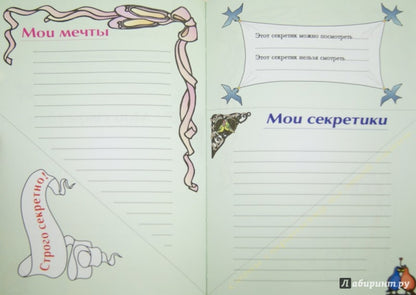 Мои мечты
Строго секретно!
Этот секретик можно посмотреть
Этот секретик нельзя смотреть
Мои секретики
Лабиринт.ру